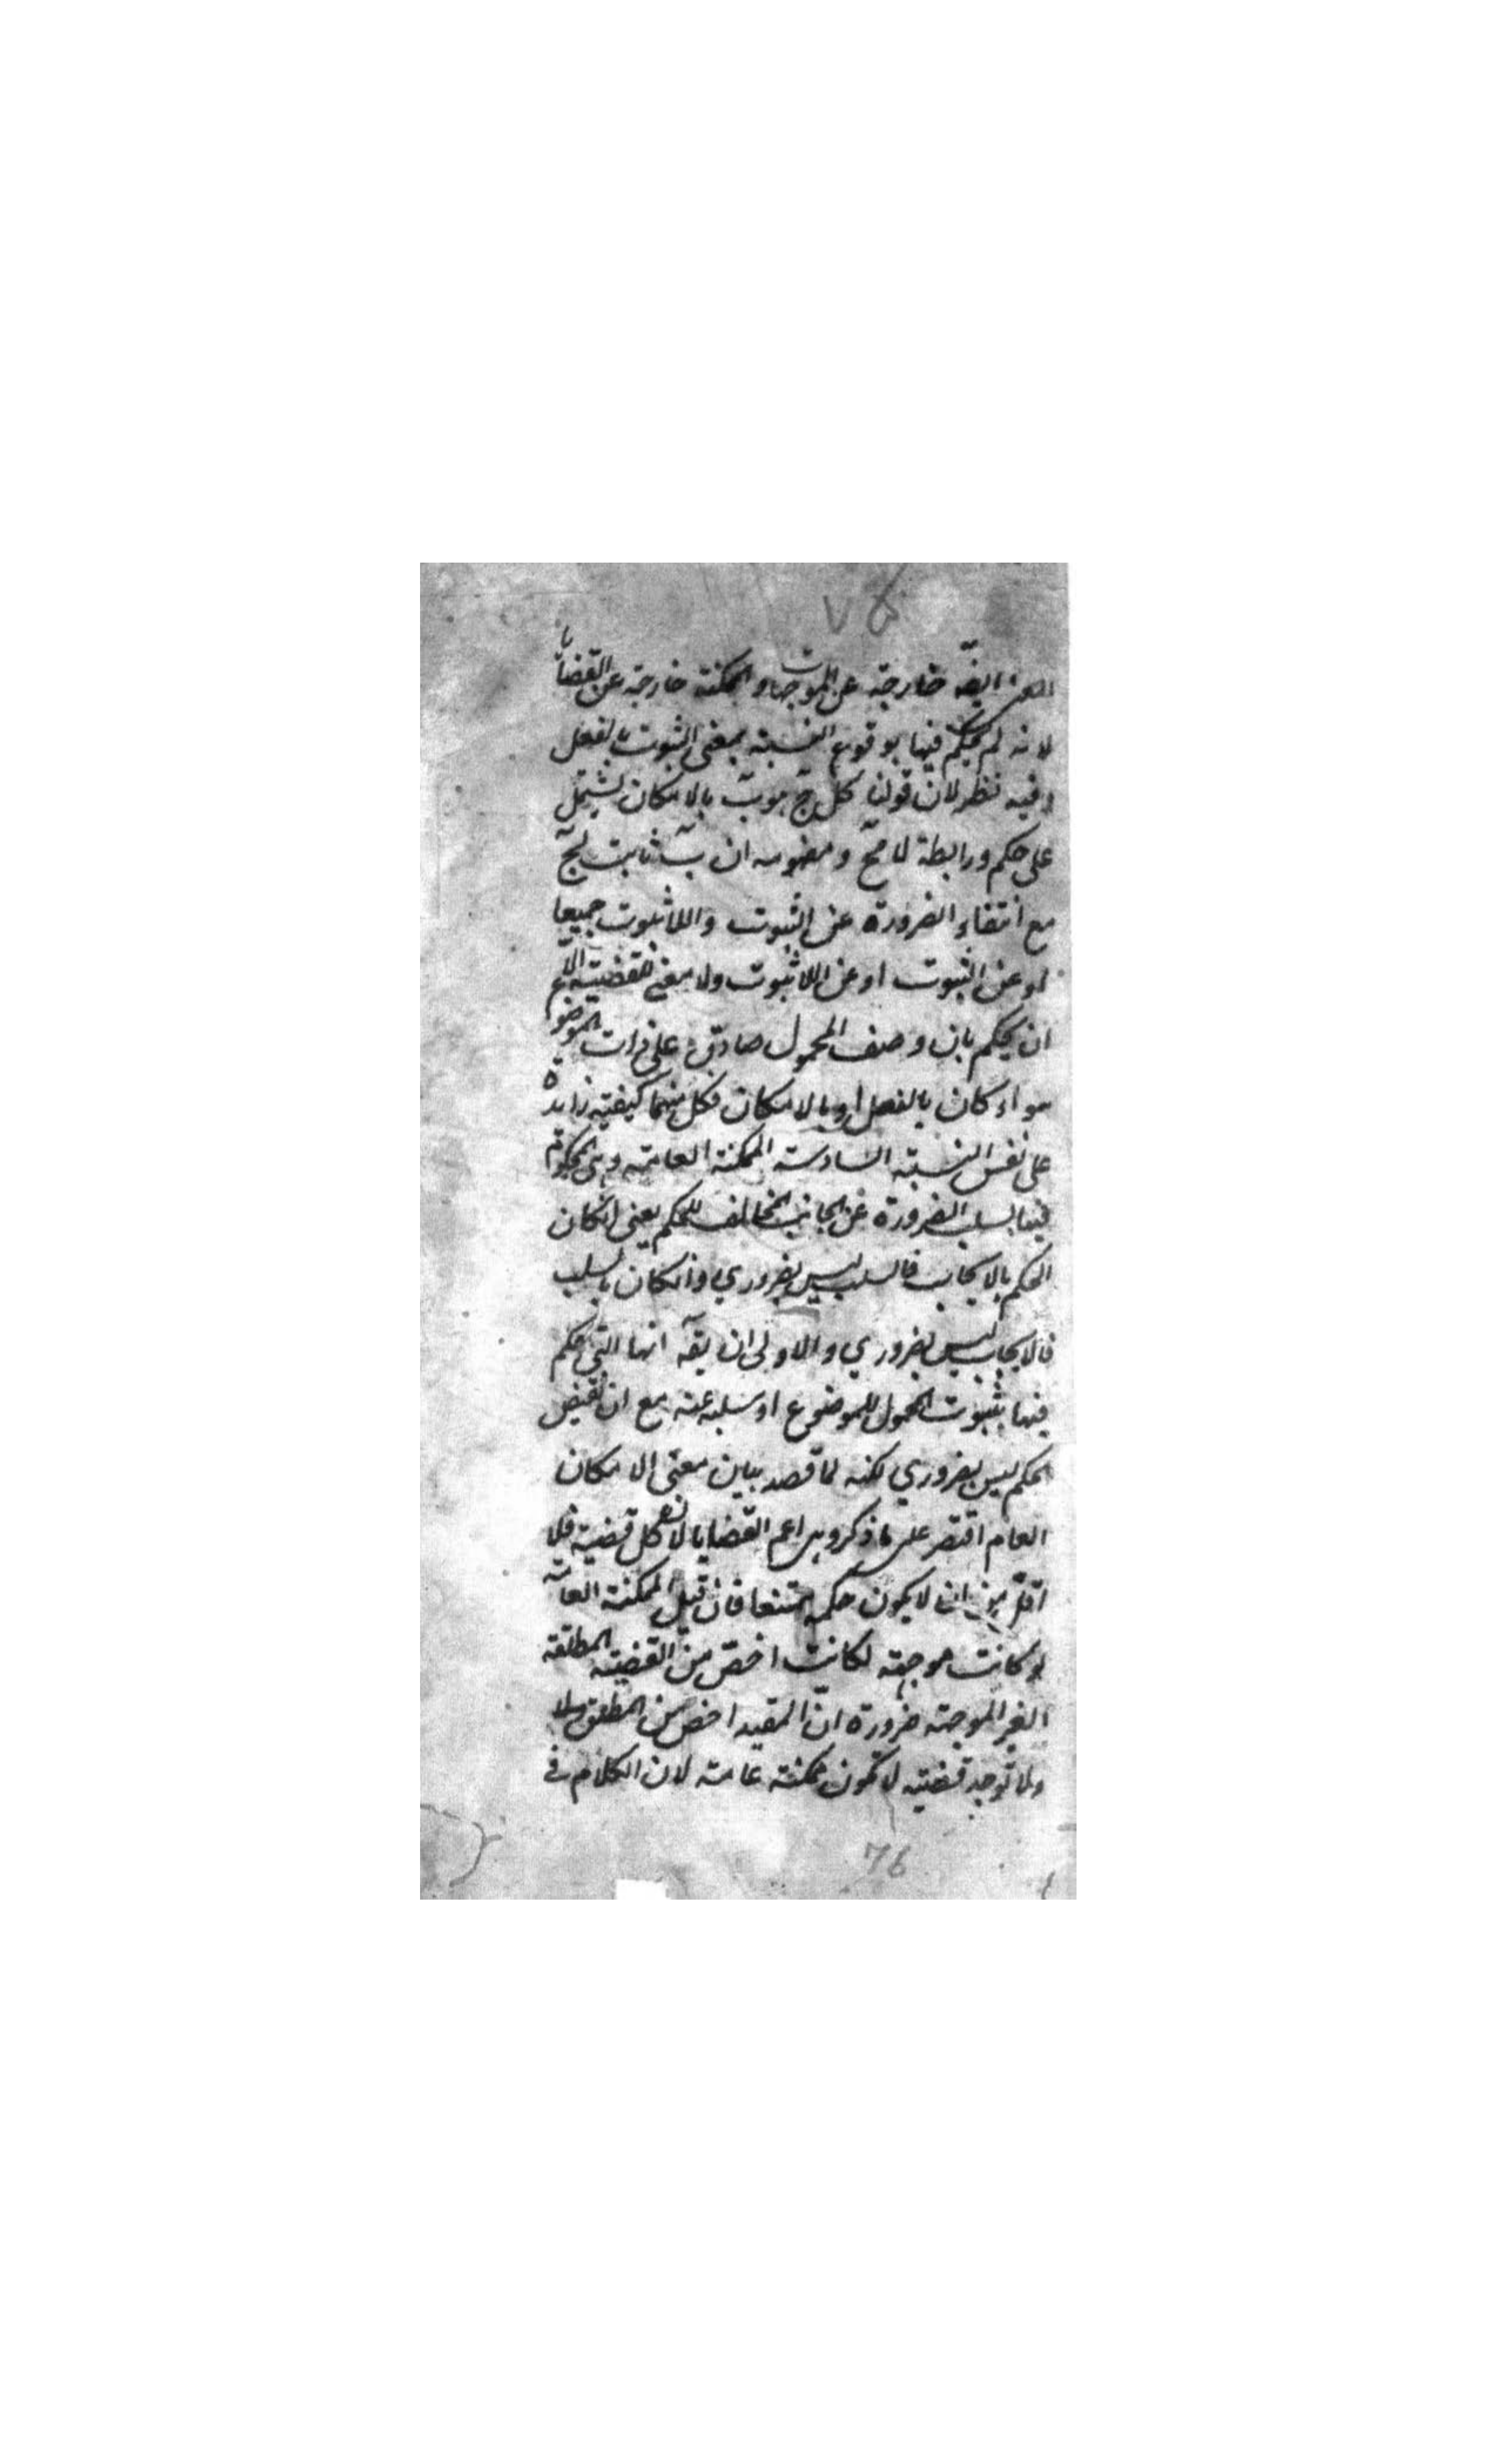 ٧٥
ايضّ خارجة عن الموجهات والممكنة خارجة عن القضايا
لانه لم يحكم فيها بوقوع النسبة بمعنى الثبوت بالفعل
وفيه نظر لان قولنا كل جٓ هو بٓ بالامكان يشتمل
على حكم ورابطة لا مح ومفهومه ان بٓ ثابت لجٓ
مع انتفاء الضرورة عن الثبوت واللاثبوت جميعا
او عن الثبوت او عن اللاثبوت ولا معنى للقضية الا
ان يحكم بان وصف المحمول صادق على ذات الموضوع
سواء كان بالفعل او بالامكان فكل منهما كيفية زايدة
على نفس النسبة السادسة الممكنة العامة وهى المحكوم
فيها بسلب الضرورة عن الجانب المخالف للحكم يعنى انكان
الحكم بالايجاب فالسلب ليس بضروري وانكان بالسلب
فالايجاب ليس بضروري والاولى ان يقٓه انها التى حكم
فيها بثبوت المحمول للموضوع او سلبه عنه مع ان نقيض
الحكم ليس بضروري لكنه لما قصد بيان معنى الامكان
العام اقتصر على ما ذكر وهى اعم القضايا لان كل قضية فلا
اقل من ان لا يكون حكمه ممتنعا فان قيل الممكنة العامة
لو كانت موجهة لكانت اخص من القضية المطلقة
الغير الموجهة ضرورة ان المقيد اخص من المطلق
ولا توجد قضية لا تكون ممكنة عامة لان الكلام فى
76